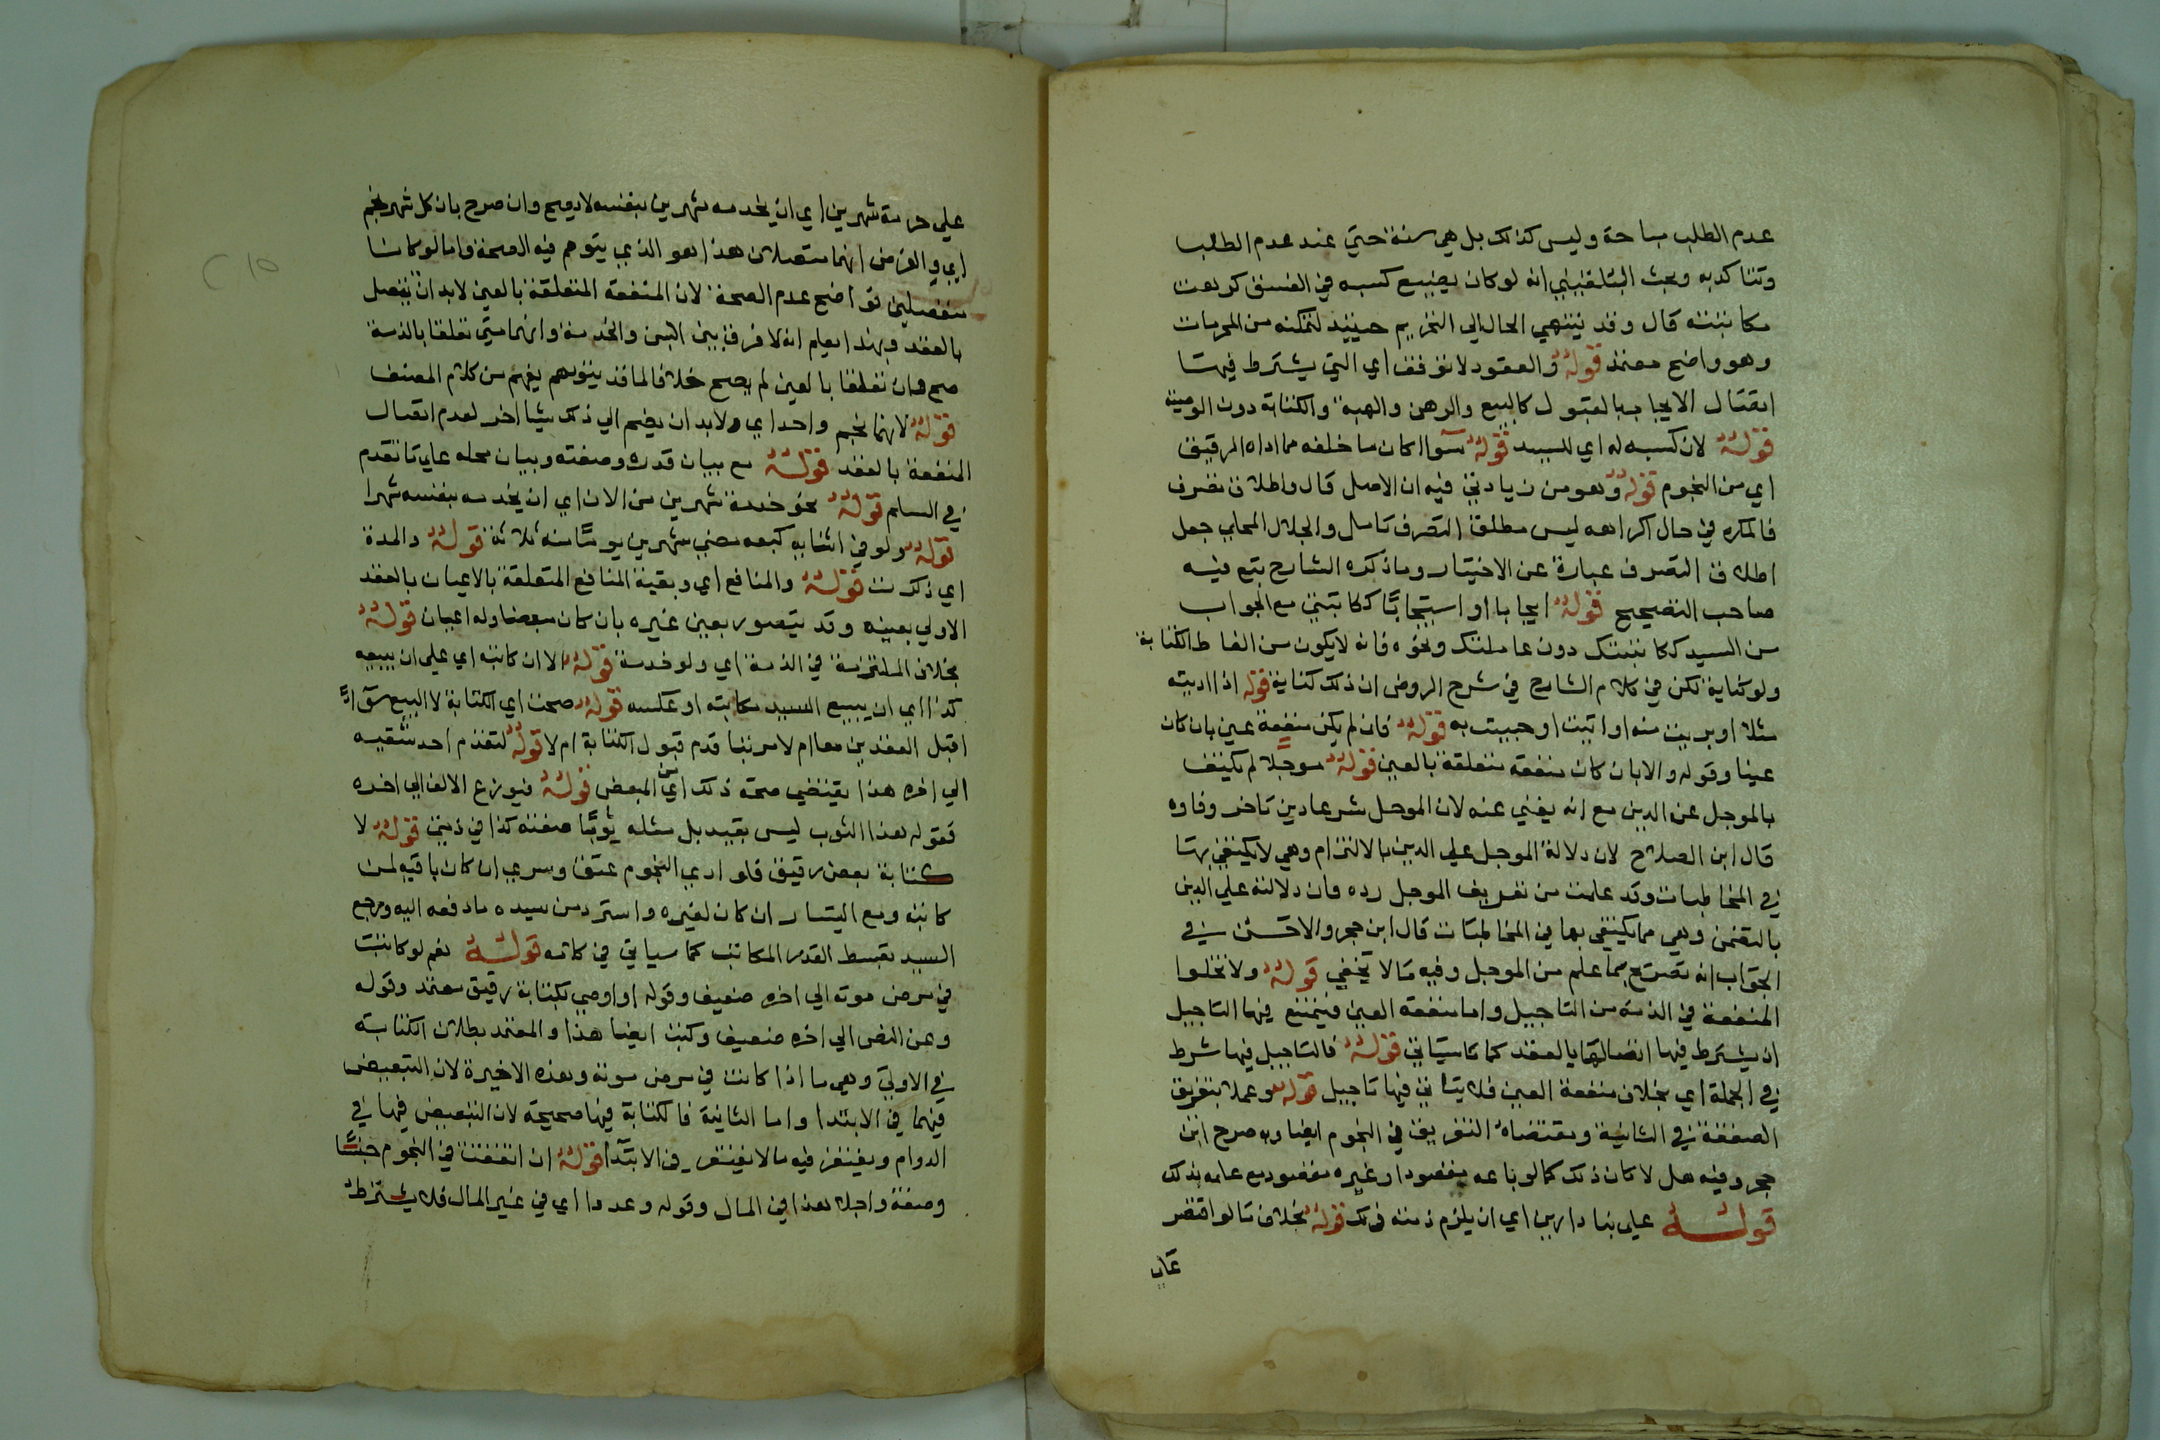 عدم الطلب مباحة وليس كذلك بل هي سنة حتى عند عدم الطلب
وتتاكد به وبحث البلقيني انه لو كان يضيع كسبه في الفسق كرهت
مكاتبته قال وقد ينتهي الحال الي التحريم حينيذ لتمكنه من المحرمات
وهو واضح معتمد قوله والعقود لا توقف اي التي يشترط فيها
اتصال الايجاب بالقبول كالبيع والرهن والهبة والكتابة دون الوصية
قوله لان كسبه له اي للسيد قوله سوا اكان ما خلفه مما اداه الرقيق
اي من النجوم قوله وهو من زيادتي فيه ان الاصل قال واطلاق تصرف
فالمكره في حال اكراهه ليس مطلق التصرف تامل والجلال المحلي جعل
اطلاق التصرف عبارة عن الاختيار وما ذكره الشارح يتبع فيه
صاحب التصحيح قوله ايجابا او استيجابا ككاتبني مع الجواب
من السيد ككاتبتك دون عاملتك ونحوه فانه لا يكون من الفاظ الكتابة
ولو كناية لكن في كلام الشارح في شرح الروض ان ذلك كناية قوله اذا اديته
مثلا او بريت منه او اتيت او جيت به قوله فان لم يكن منفعة عين بان كان
عينا وقوله والا بان كان منفعة متعلقة بالعين قوله موجلا لم يكتف
بالموجل عن الدين مع انه يغني عنه لان الموجل شرعا دين تاخر وفاوه
قال ابن الصلاح لان دلالة الموجل علي الدين بالالتزام وهي لا يكتفي بها
في المخاطبات وقد علمت من تعريف الموجل رده فان دلالته علي الدين
بالتضمن وهي مما يكتفي بها في المخاطبات قال ابن حجر والاحسن في
الجواب انه تصريح بما علم من الموجل وفيه ما لا يخفي قوله ولا تخلوا
المنفعة في الذمة من التاجيل واما منفعة العين فيمتنع فيها التاجيل
ان يشترط فيها اتصالها بالعقد كما سياتي قوله فالتاجيل فيها شرط
في الجملة اي بخلاف منفعة العين فلا يتاتي فيها تاجيل قوله وعملا بتفريق
الصفقة في الثانية ومقتضاه التفريق في النجوم ايضا وبه صرح ابن
حجر وفيه هل لا كان ذلك كما لو باعه مغصوبا وغيره مغصوب مع علمه بذلك
قوله علي بنا دارين اي ان يلزم ذمته ذلك قوله بخلاف ما لو اقتصر
علي
علي خدمة شهرين اي ان يخدمه شهرين بنفسه لا يصح وان صرح بان كل شهر نجم
اي والفرض انهما متصلان هذا هو الذي يتوهم فيه الصحة واما لو كانا
منفصلين فواضح عدم الصحة لان المنفعة المتعلقة بالعين لا بد ان تتصل
بالعقد وبهذا يعلم انه لا فرق بين البنا والخدمة وانهما متي تعلقا بالذمة
صح وان تعلقا بالعين لم يصح خلافا لما قد يتوهم يفهم من كلام المصنف
قوله لانهما نجم واحد اي ولا بد ان يضم الي ذلك شيا اخر لعدم اتصال
المنفعة بالعقد قوله مع بيان قدره وصفته وبيان محله علي ما تقدم
في السلم قوله نحو خدمة شهرين من الان اي ان يخدمه بنفسه شهرا
قوله ولو في اثنايه كبعد مضي شهرين يوما منه ثلاثة قوله والمدة
اي ذكرت قوله والمنافع اي وبقية المنافع المتعلقة بالاعيان بالعقد
الاولي بعينه وقد يتصور بعين غيره بان كان مبعضا وله اعيان قوله
بخلاف الملتزمة في الذمة اي ولو خدمة قوله الا ان كاتبه اي علي ان يبيعه
كذا اي ان يبيع السيد مكاتبه او عكسه قوله صحت اي الكتابة لا البيع سوا
اقبل العقدين معا ام لا مرتبا قدم قبول الكتابة ام لا قوله لتقدم احد شقيه
الي اخره هذا يقتضي صحة ذلك اي من المبعض قوله فيوزع الالف الي اخره
فقوله هذا الثوب ليس بقيد بل مثله ثوبا صفته كذا في ذمتي قوله لا
كتابة بعض رقيق فلو ادي النجوم عتق وسري ان كان باقيه لمن
كاتبه ومع اليسار ان كان لغيره واسترد من سيده ما دفعه اليه ورجع
السيد بقسط القدر المكاتب كما سياتي في كلامه قوله نعم لو كاتبت
في مرض موته الي اخره ضعيف وقوله او اوصي بكتابة رقيق معتمد وقوله
وعن النص الي اخره ضعيف وكتب ايضا هذا والمعتمد بطلان الكتابة
في الاولي وهي ما اذا كاتب في مرض موته وهذه الاخيرة لان التبعيض
فيهما في الابتدا واما الثانية فالكتابة فيها صحيحة لان التبعيض فيها في
الدوام ويغتفر فيه ما لا يغتفر في الابتدا قوله ان اتفقت في النجوم جنسا
وصفة واجلا هذا في المال وقوله وعددا اي في غير المال فلا يشترط